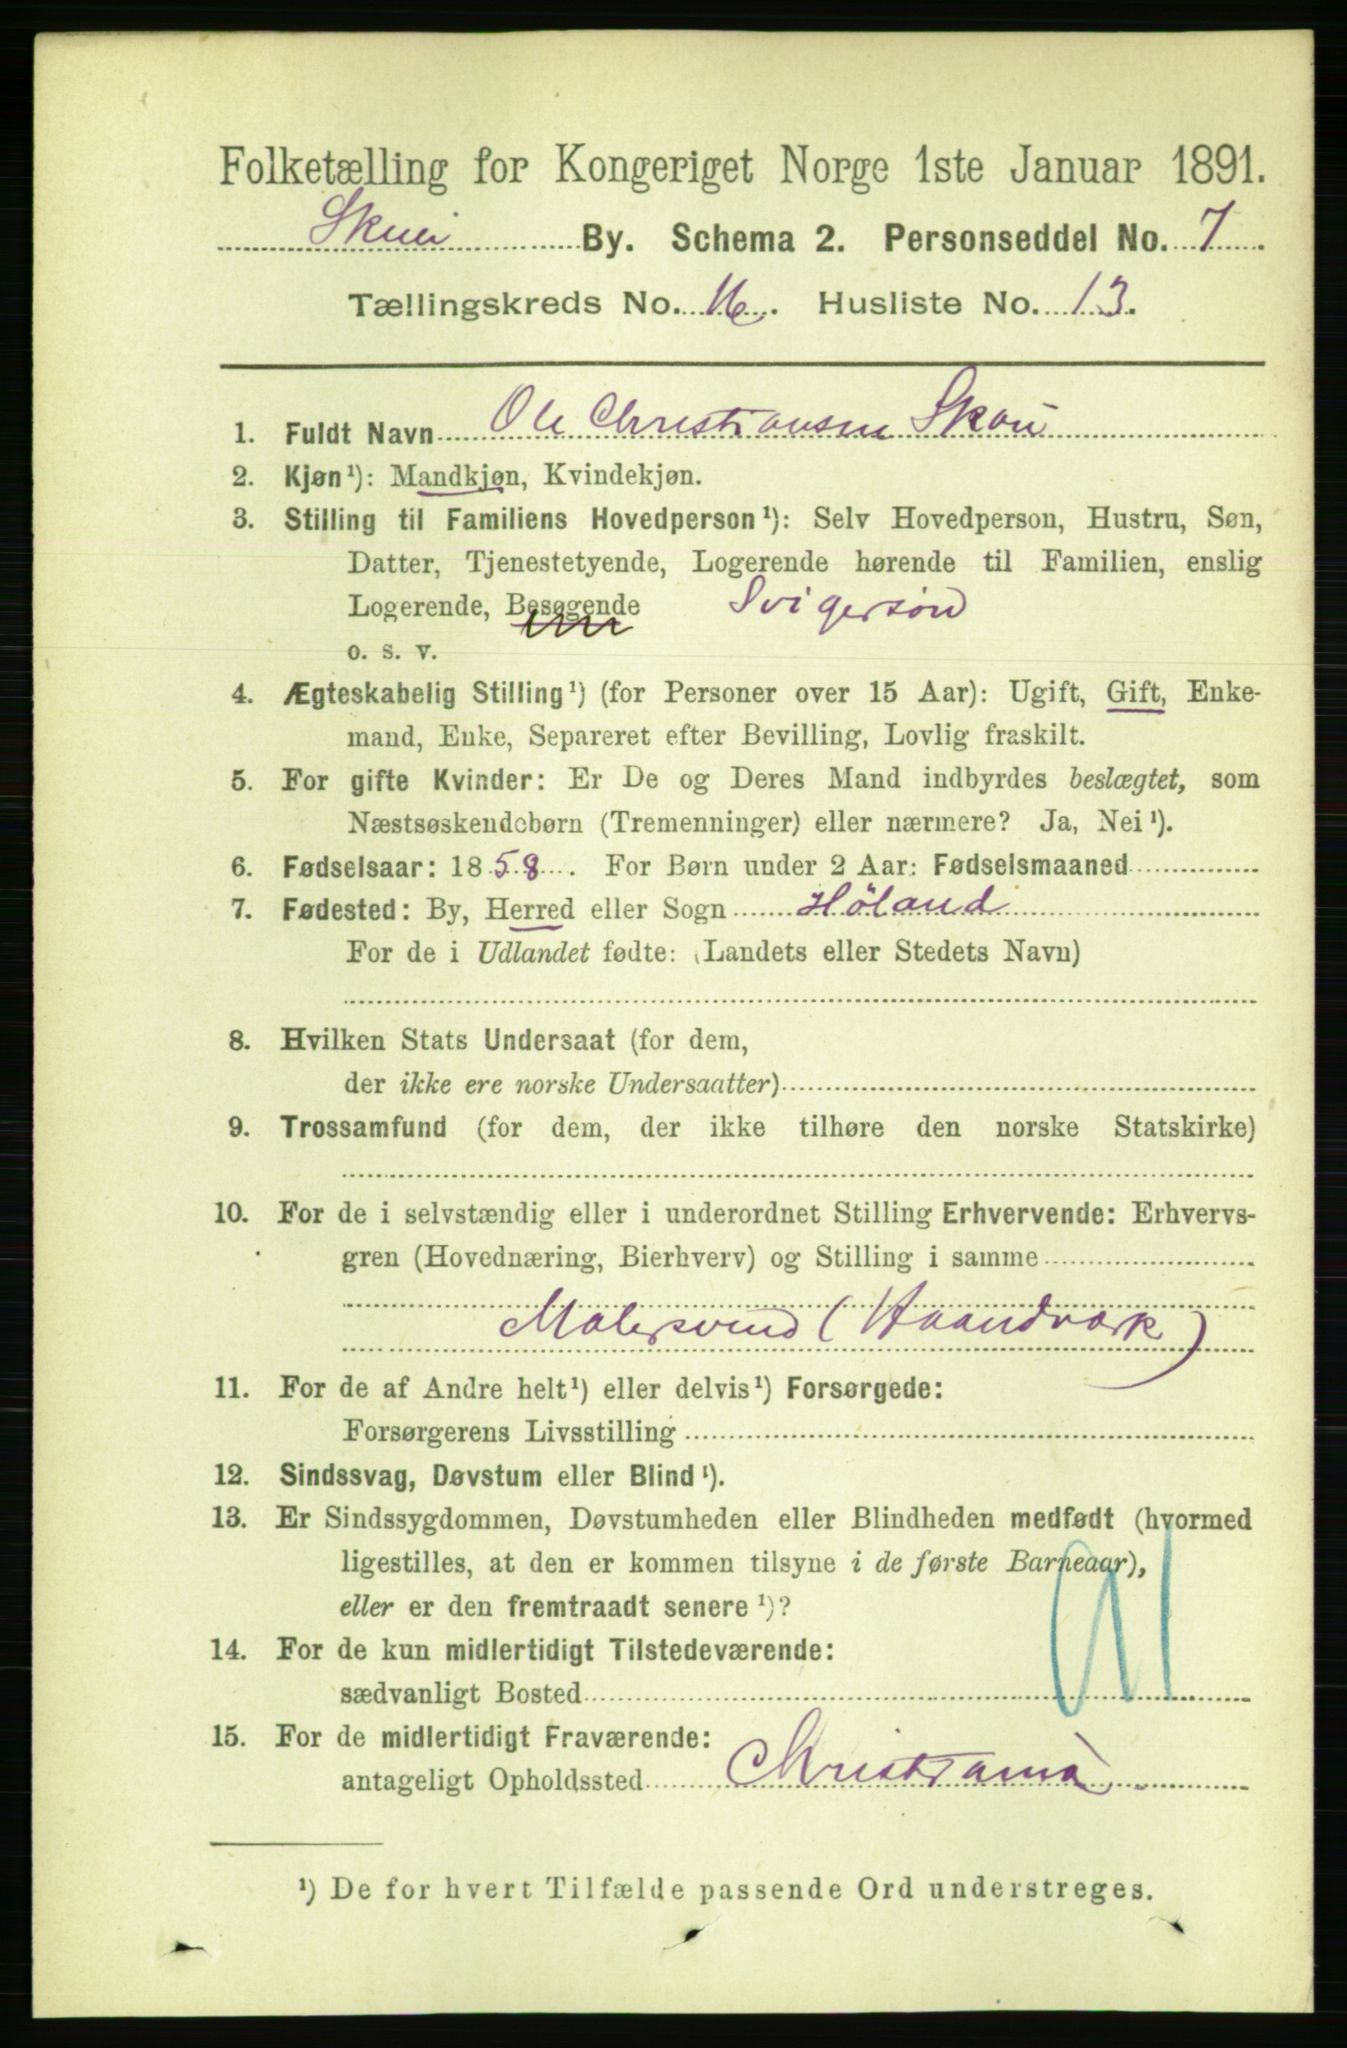 Folketælling for Kongeriget Norge 1ste Januar 1891.
Skien By. Schema 2. Personseddel No. 7.
Tællingskreds No. 16. Husliste No. 13.
1. Fuldt Navn Ole Christiansen Skau
2. Kjøn¹): Mandkjøn, Kvindekjøn.
3. Stilling til Familiens Hovedperson¹): Selv Hovedperson, Hustru, Søn,
Datter, Tjenestetyende, Logerende hørende til Familien, enslig
Logerende, Besøgende Svigersön
o. s. v.
4. Ægteskabelig Stilling¹) (for Personer over 15 Aar): Ugift, Gift, Enke-
mand, Enke, Separeret efter Bevilling, Lovlig fraskilt.
5. For gifte Kvinder: Er De og Deres Mand indbyrdes beslægtet, som
Næstsøskendebørn (Tremenninger) eller nærmere? Ja, Nei¹).
6. Fødselsaar: 1858. For Børn under 2 Aar: Fødselsmaaned
7. Fødested: By, Herred eller Sogn Höland
For de i Udlandet fødte: (Landets eller Stedets Navn)
8. Hvilken Stats Undersaat (for dem,
der ikke ere norske Undersaatter)
9. Trossamfund (for dem, der ikke tilhøre den norske Statskirke)
10. For de i selvstændig eller i underordnet Stilling Erhvervende: Erhvervs-
gren (Hovednæring, Bierhverv) og Stilling i samme
Malersvend (Haandværk)
11. For de af Andre helt¹) eller delvis¹) Forsørgede:
Forsørgerens Livsstilling
12. Sindssvag, Døvstum eller Blind¹).
13. Er Sindssygdommen, Døvstumheden eller Blindheden medfødt (hvormed
ligestilles, at den er kommen tilsyne i de første Barneaar),
eller er den fremtraadt senere¹)?
14. For de kun midlertidigt Tilstedeværende:
sædvanligt Bosted
15. For de midlertidigt Fraværende:
antageligt Opholdssted Christiania
¹) De for hvert Tilfælde passende Ord understreges.